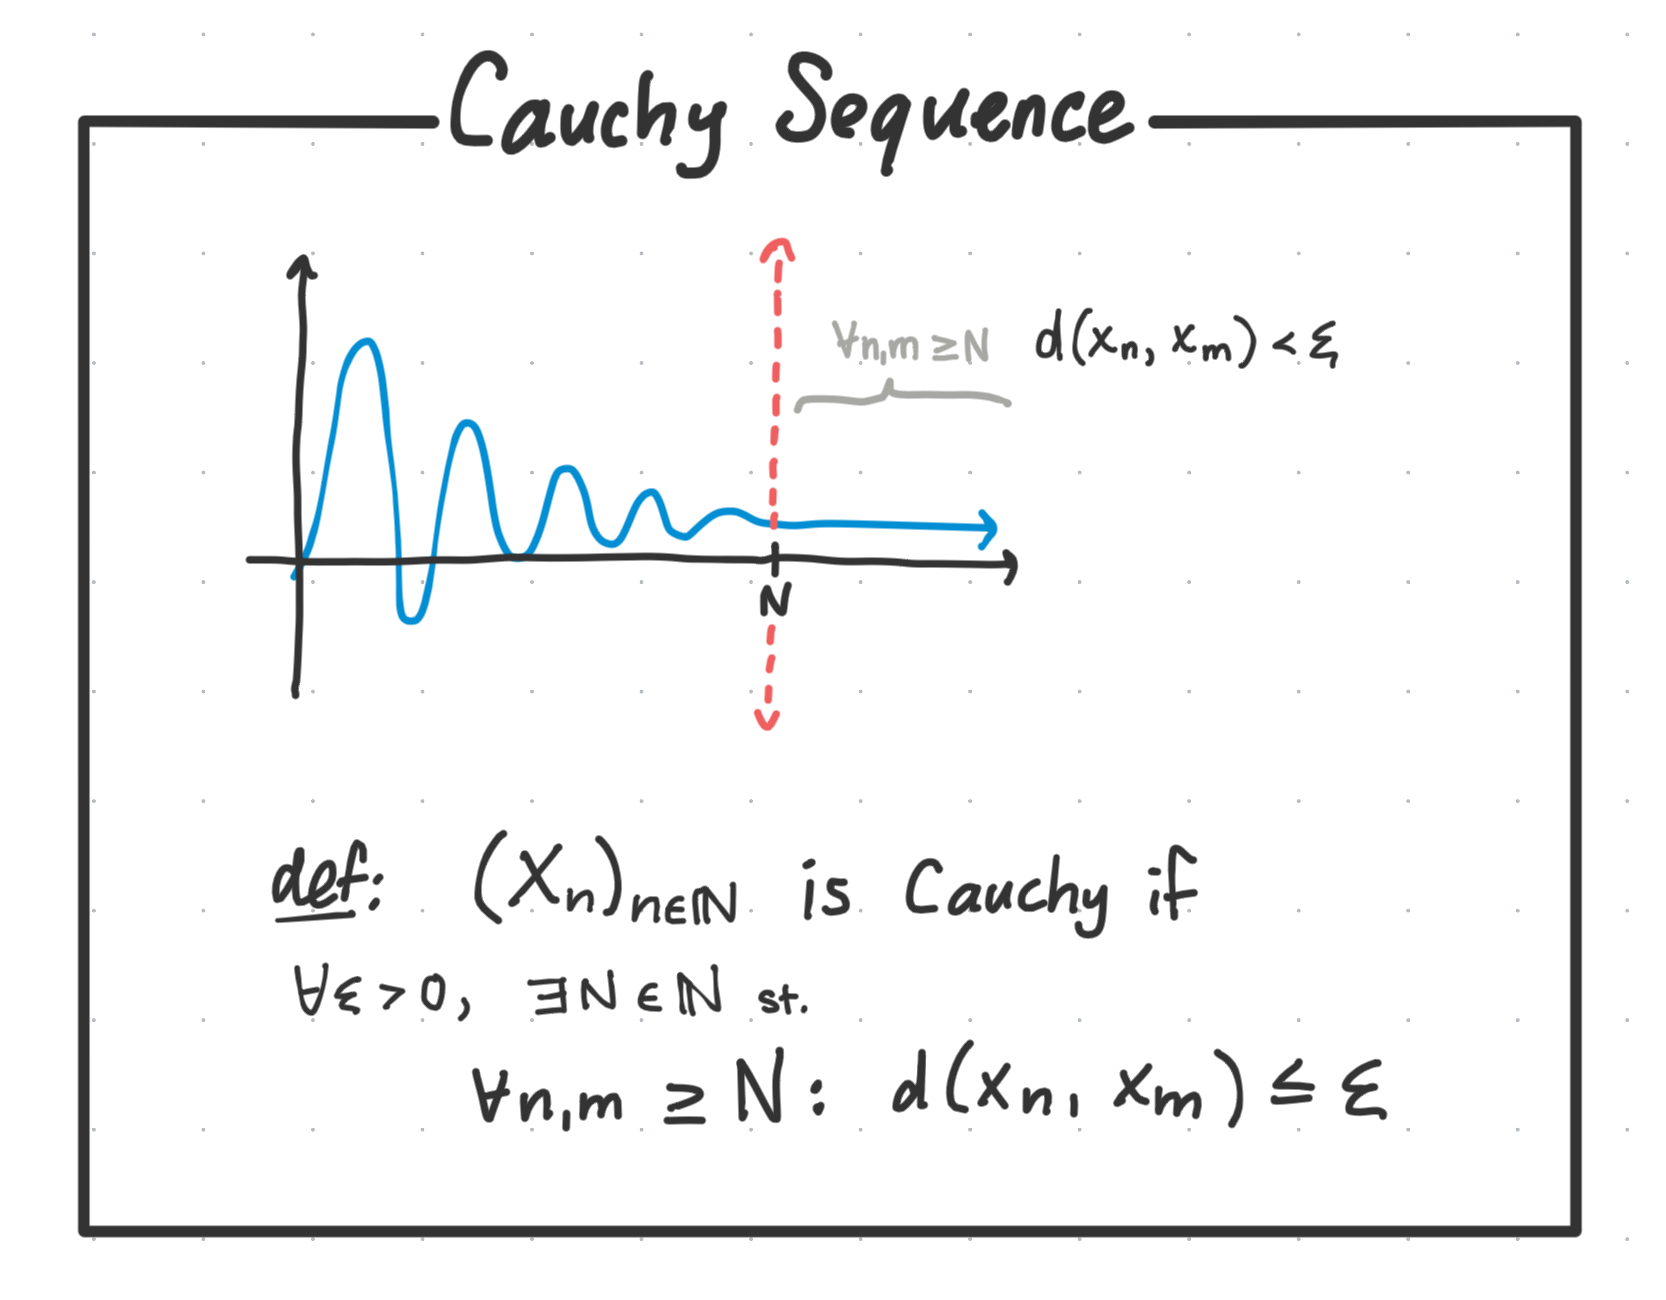 Cauchy Sequence
∀n,m ≥ N d(xₙ, xₘ) < ε
N
def: (Xₙ)ₙ∈ℕ is Cauchy if
∀ε > 0, ∃N ∈ ℕ st.
∀n,m ≥ N: d(xₙ, xₘ) ≤ ε